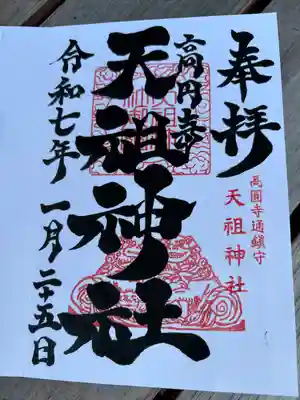 奉拝
高圓寺通鎮守
天祖神社
高円寺
天祖神社
令和七年 一月二十五日